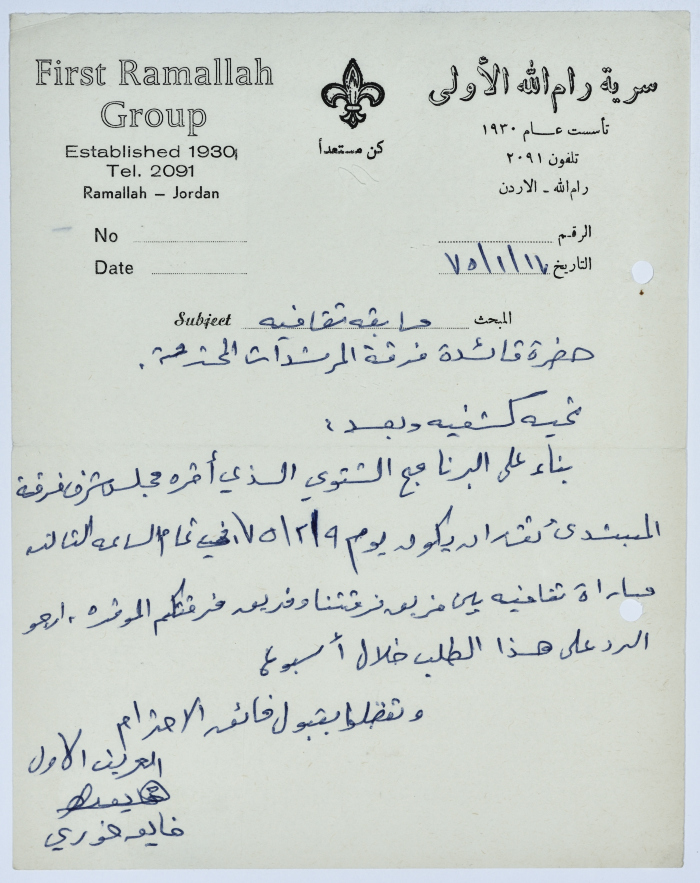 First Ramallah Group
Established 1930
Tel. 2091
Ramallah – Jordan
سرية رام الله الأولى
تأسست عام ١٩٣٠
تلفون ٢٠٩١
رام الله - الاردن
كن مستعداً
No
Date
الرقم
التاريخ ٧٥/١/١٧
Subject مسابقه ثقافيه المبحث
حضرة قائدة فرقة المرشدات المحترمة .
تحيه كشفيه وبعد :
بناء على البرنامج الشتوي الذي أقره مجلس شرف فرقة
المبتدى تقرر ان يكون يوم ٧٥/٢/٩ في تمام الساعه الثالثه
مباراة ثقافيه بين فريق فرقتنا وفريق فرقتكم الموقره . ارجو
الرد على هذا الطلب خلال أسبوع
وتفضلوا بقبول فائق الاحترام
العريف الاول
فايق خوري